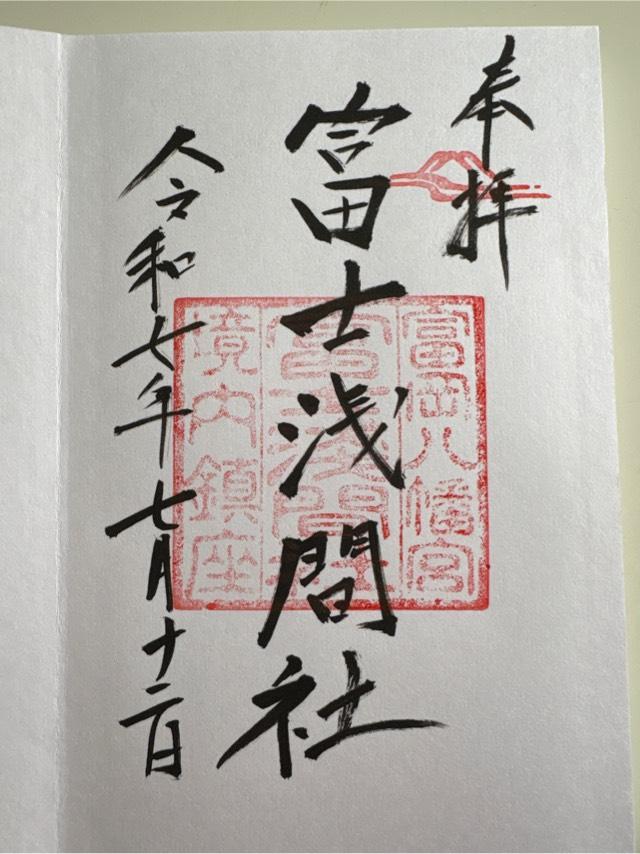 奉拝
富士浅間社
令和七年七月十二日
富岡八幡宮
富士浅間社
境内鎮座